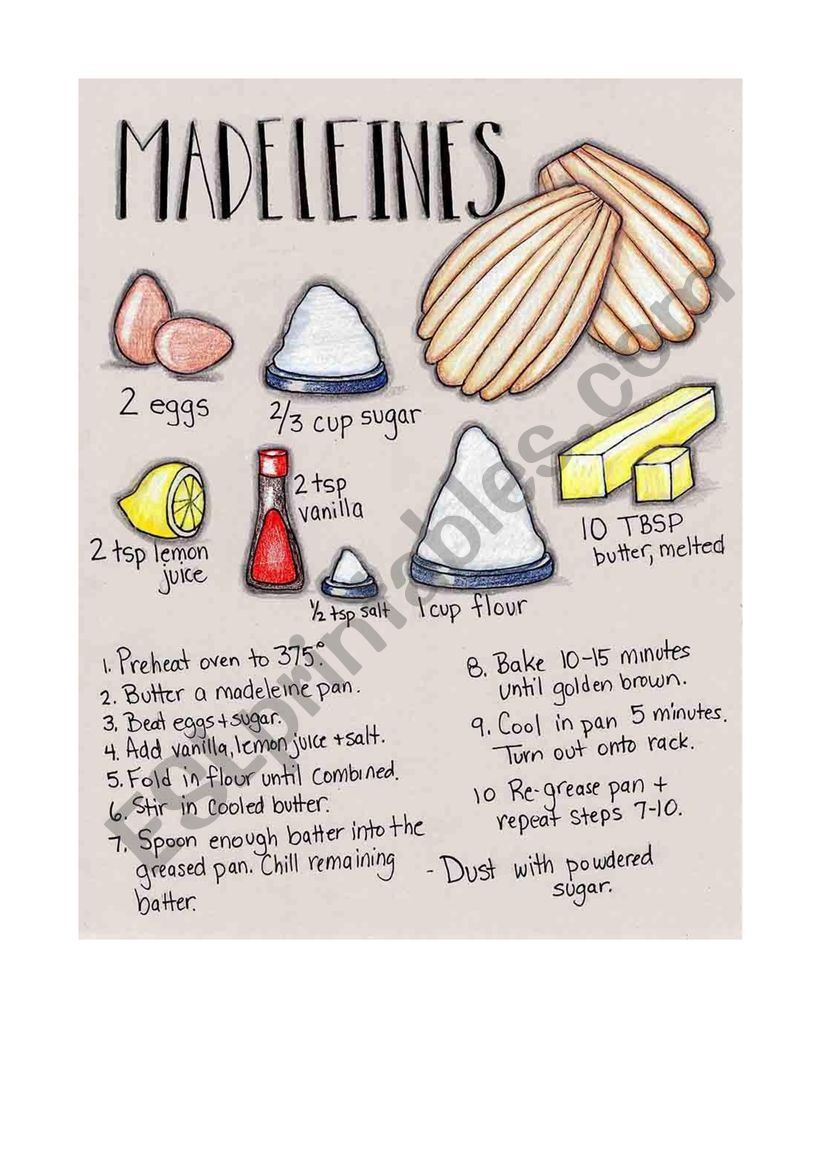 MADELEINES
2 eggs
2/3 cup sugar
2 tsp lemon
juice
2 tsp
vanilla
1/2 tsp salt
1 cup flour
10 TBSP
butter, melted
1. Preheat oven to 375°.
2. Butter a madeleine pan.
3. Beat eggs + sugar.
4. Add vanilla, lemon juice + salt.
5. Fold in flour until combined.
6. Stir in cooled butter.
7. Spoon enough batter into the
greased pan. Chill remaining
batter.
8. Bake 10-15 minutes
until golden brown.
9. Cool in pan 5 minutes.
Turn out onto rack.
10 Re-grease pan +
repeat steps 7-10.
- Dust with powdered
sugar.
ESLprintables.com